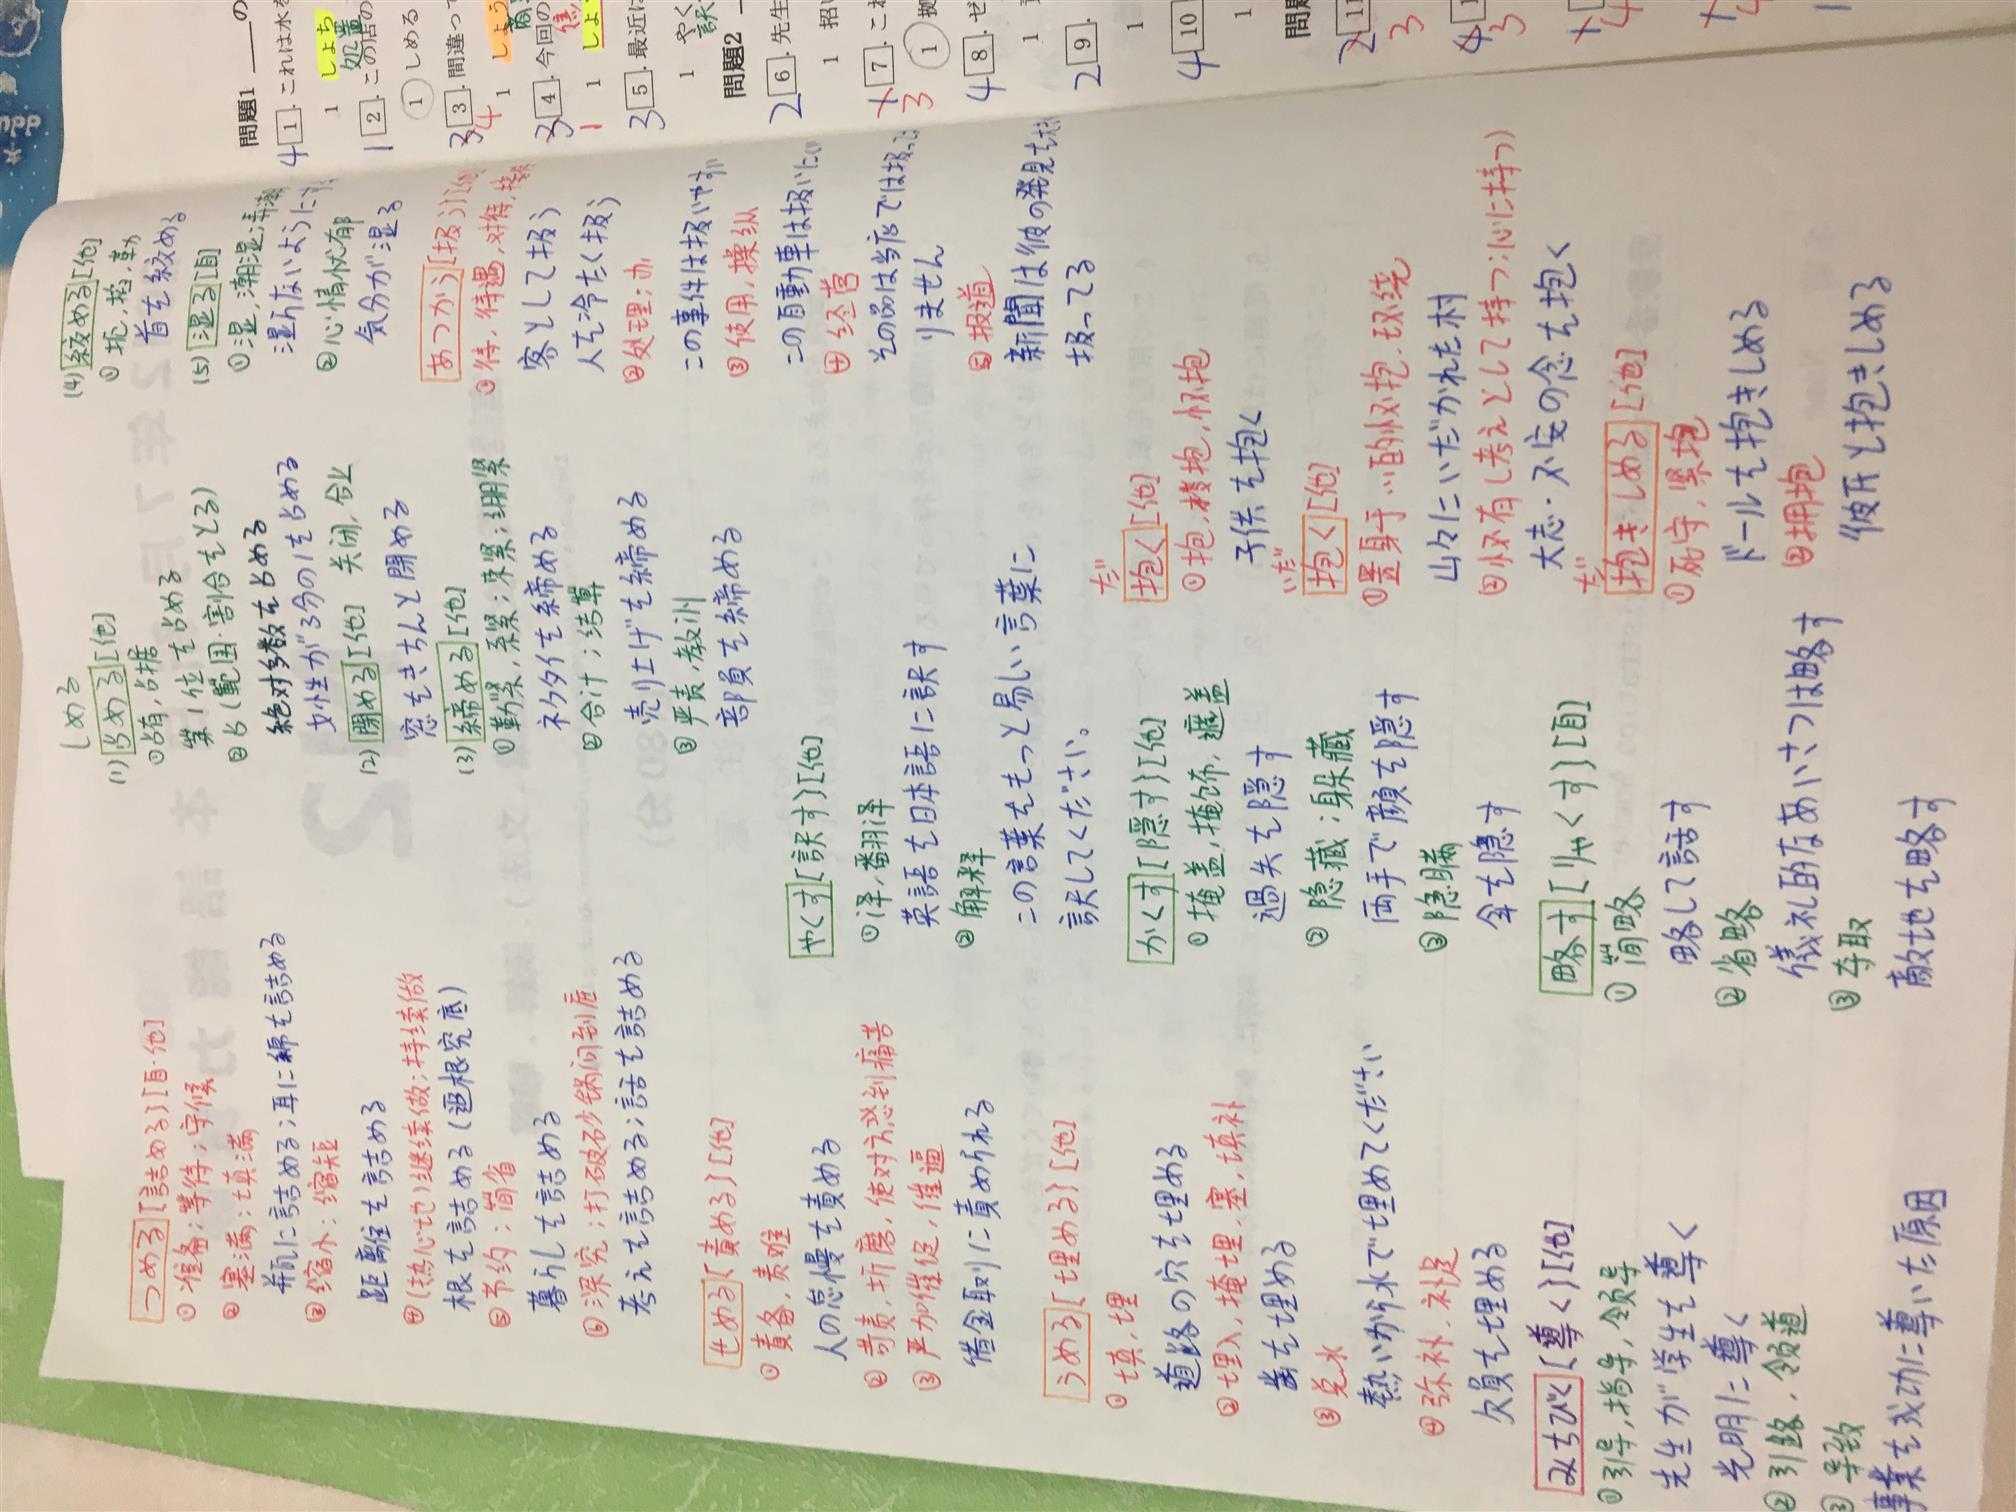 つめる[詰める][自·他]
①准备;等待;守候
②塞满;填满
瓶に詰める;耳に綿を詰める
③缩水;缩短
距離を詰める
④(热心地)继续做;持续做
根を詰める(追根究底)
⑤节约;简省
暮らしを詰める
⑥深究;打破砂锅问到底
考えを詰める;話を詰める
せめる[責める][他]
①責备,责难
人の怠慢を責める
②苛责,折磨,使对方感到痛苦
③严加催促,催逼
借金取りに責められる
うめる[埋める][他]
①填,埋
道路の穴を埋める
②埋入,掩埋,塞,填补
歯を埋める
③兑水
熱いから水で埋めてください
④弥补.补足
欠員を埋める
みちびく[導く][他]
①引导,指导,领导
先生が学生を導く
光明に導く
②引路.领道
③导致
事業を成功に導いた原因
しめる
(1)占める[他]
①占有,占据
第1位を占める
②占(範囲·割合をとる)
絶対多数を占める
女性が3分の1を占める
(2)閉める[他] 关闭,合上
窓をきちんと閉める
(3)締める[他]
①勒紧,系紧;束紧;绷紧
ネクタイを締める
②合计;结算
売り上げを締める
③严责,教训
部員を締める
やくす[訳す][他]
①译,翻译
英語を日本語に訳す
②解释
この言葉をもっと易しい言葉に
訳してください。
かくす[隠す][他]
①掩盖,掩饰,遮盖
過失を隠す
②隐藏;躲藏
両手で顔を隠す
③隐瞒
年を隠す
略す[りゃくす][自]
①简略
略して話す
②省略
儀礼的なあいさつは略す
③夺取
敵地を略す
(4)絞める[他]
①扼,掐,勒
首を絞める
(5)湿る[自]
①湿,潮湿;弄潮
湿らないように
②心情忧郁
気分が湿る
あつかう[扱う][他
①待,待遇,对待,接
客として扱う
人を冷たく扱う
②处理;办
この事件は扱いやす
③使用,操纵
この自動車は扱いにく
④经营
その品は当店では扱って
りません
⑤报道
新聞は彼の発見を
扱ってる
だ
抱く[他]
①抱,搂抱,怀抱
子供を抱く
いだ
抱く[他]
①置身于…的怀抱.环绕
山々にいだかれた村
②怀有し考えとして持つ:心に持つ
大志··不安の念を抱く
だ
抱きしめる[他]
①死守,紧抱
ドールを抱きしめる
②拥抱
彼氏と抱きしめる
問題1
4 1.これは水を
1 しょち
処置
1 2.この店の
① しめる
3 3.間違って
4
1 しょう
3 4.今回の
1
1 しょ
3 5.最近に
1 やく
訳
問題2
2 6.先生
1 招
7.これ
3 ① 拠
4 8.ゼ
1
2 9.
1
4 10
1
問題
2 11
3